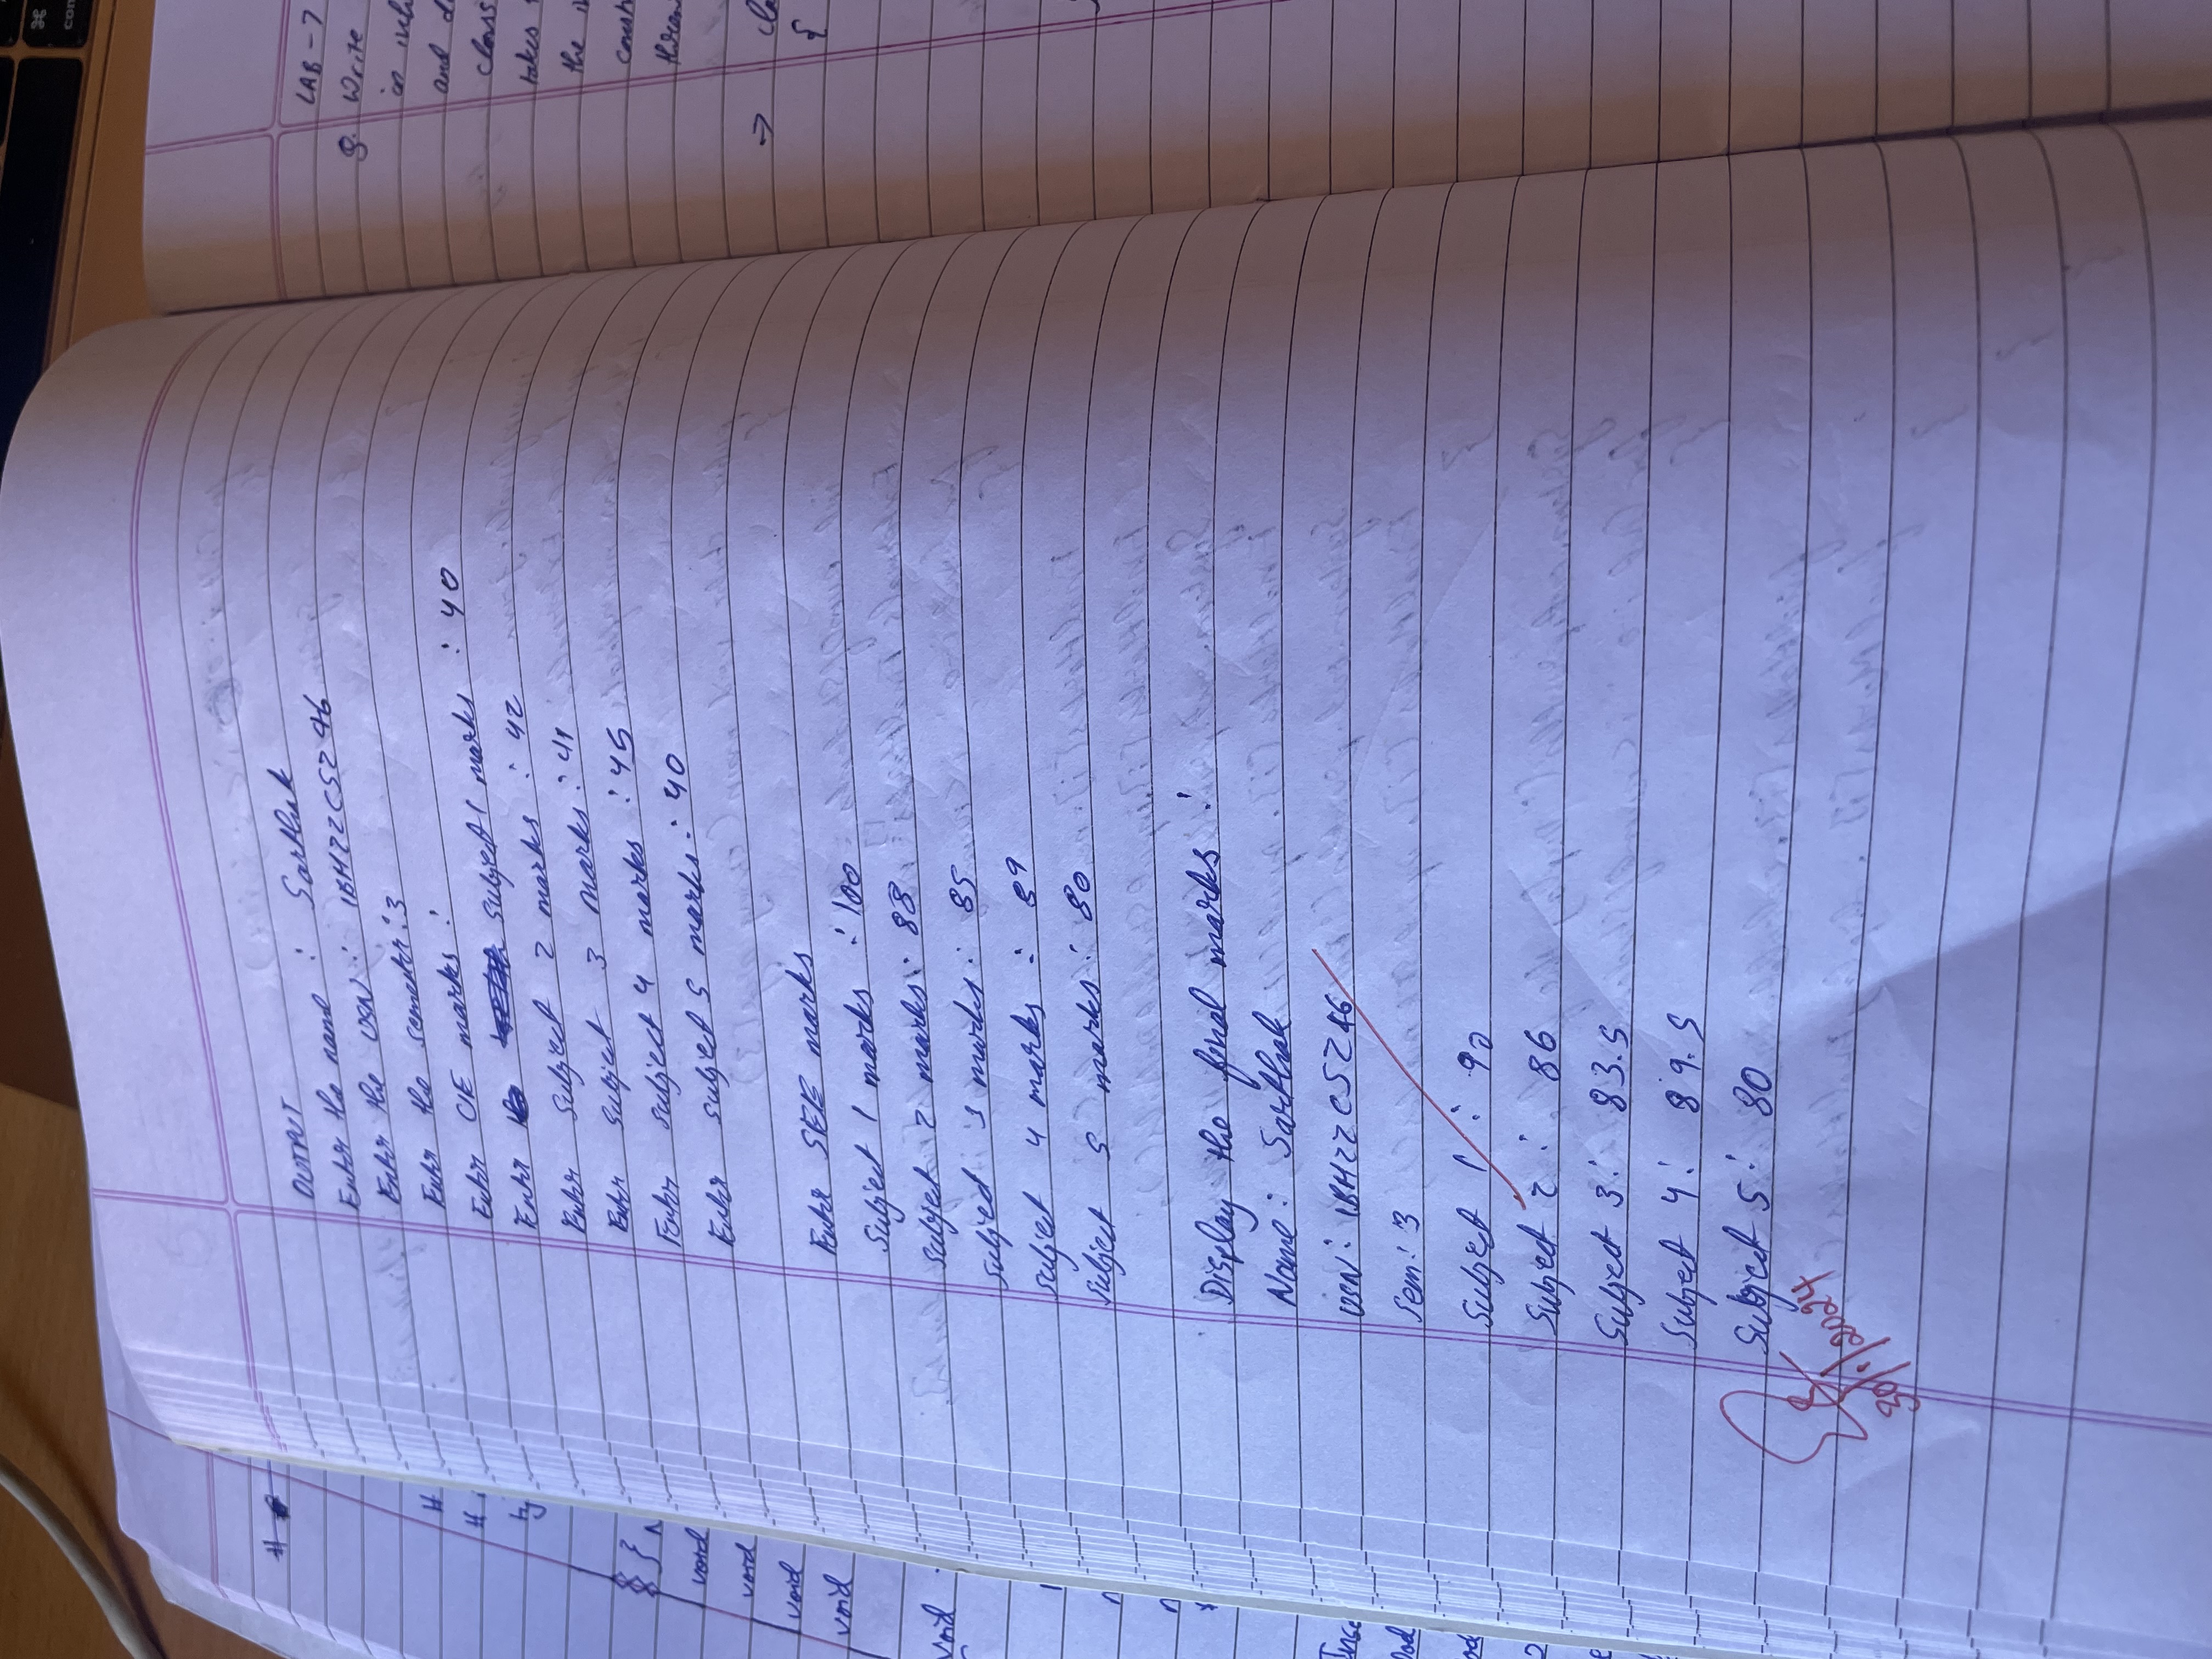 OUTPUT
Enter the name : Sarthak
Enter the USN : 1BM22CS246
Enter the semester : 3
Enter CIE marks :
Enter subject 1 marks : 40
Enter subject 2 marks : 42
Enter subject 3 marks : 41
Enter subject 4 marks : 45
Enter subject 5 marks : 40
Enter SEE marks
Subject 1 marks : 100
Subject 2 marks : 88
Subject 3 marks : 85
Subject 4 marks : 89
Subject 5 marks : 80
Display the final marks :
Name : Sarthak
USN : 1BM22CS246
Sem : 3
Subject 1 : 90
Subject 2 : 86
Subject 3 : 83.5
Subject 4 : 89.5
Subject 5 : 80
30/1/2024
#
#
#
ty
}
void
void
void
void
void
LAB - 7
Q. Write
in
and
class
takes
the
→
{
⌘